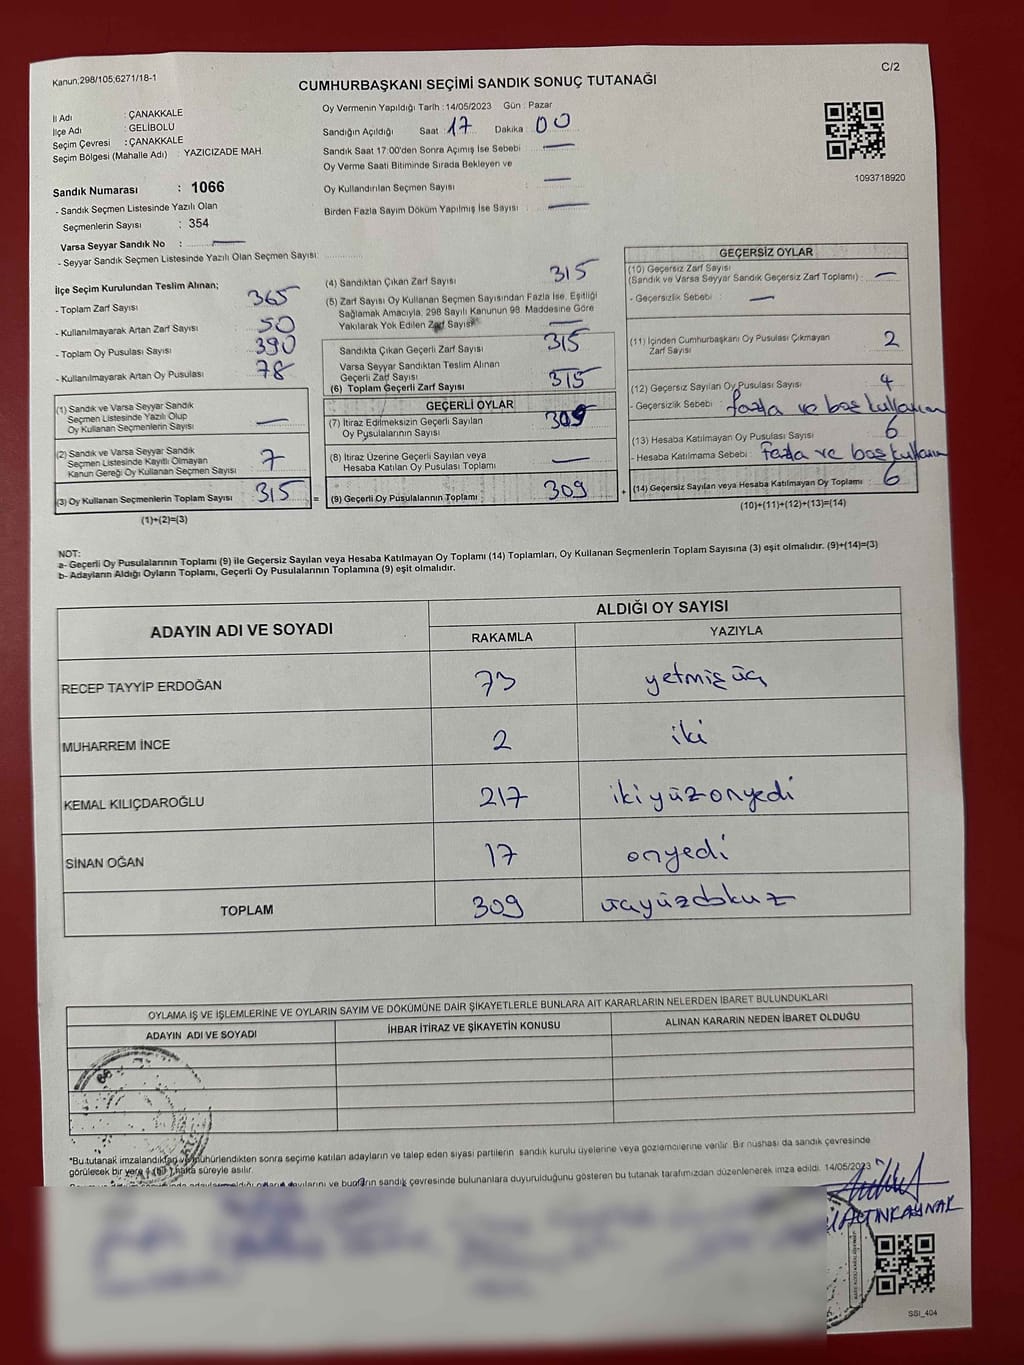 Kanun;298/105;6271/18-1
C/2
CUMHURBAŞKANI SEÇİMİ SANDIK SONUÇ TUTANAĞI
İl Adı : ÇANAKKALE
İlçe Adı : GELİBOLU
Seçim Çevresi : ÇANAKKALE
Seçim Bölgesi (Mahalle Adı) : YAZICIZADE MAH.
Oy Vermenin Yapıldığı Tarih : 14/05/2023 Gün : Pazar
Sandığın Açıldığı Saat : 17 Dakika : 00
Sandık Saat 17:00'den Sonra Açımış İse Sebebi : —
Oy Verme Saati Bitiminde Sırada Bekleyen ve
Oy Kullandırılan Seçmen Sayısı : —
Birden Fazla Sayım Döküm Yapılmış İse Sayısı : —
1093718920
Sandık Numarası : 1066
- Sandık Seçmen Listesinde Yazılı Olan
Seçmenlerin Sayısı : 354
Varsa Seyyar Sandık No : —
- Seyyar Sandık Seçmen Listesinde Yazılı Olan Seçmen Sayısı:
İlçe Seçim Kurulundan Teslim Alınan;
- Toplam Zarf Sayısı : 365
- Kullanılmayarak Artan Zarf Sayısı : 50
- Toplam Oy Pusulası Sayısı : 390
- Kullanılmayarak Artan Oy Pusulası : 78
(1) Sandık ve Varsa Seyyar Sandık
Seçmen Listesinde Yazılı Olup
Oy Kullanan Seçmenlerin Sayısı : —
(2) Sandık ve Varsa Seyyar Sandık
Seçmen Listesinde Kayıtlı Olmayan
Kanun Gereği Oy Kullanan Seçmen Sayısı : 7
(3) Oy Kullanan Seçmenlerin Toplam Sayısı : 315 =
(1)+(2)=(3)
(4) Sandıktan Çıkan Zarf Sayısı : 315
(5) Zarf Sayısı Oy Kullanan Seçmen Sayısından Fazla İse, Eşitliği
Sağlamak Amacıyla, 298 Sayılı Kanunun 98. Maddesine Göre
Yakılarak Yok Edilen Zarf Sayısı : —
Sandıkta Çıkan Geçerli Zarf Sayısı : 315
Varsa Seyyar Sandıktan Teslim Alınan
Geçerli Zarf Sayısı
(6) Toplam Geçerli Zarf Sayısı : 315
GEÇERLİ OYLAR
(7) İtiraz Edilmeksizin Geçerli Sayılan
Oy Pusulalarının Sayısı : 309
(8) İtiraz Üzerine Geçerli Sayılan veya
Hesaba Katılan Oy Pusulası Toplamı : —
(9) Geçerli Oy Pusulalarının Toplamı : 309 +
GEÇERSİZ OYLAR
(10) Geçersiz Zarf Sayısı
(Sandık ve Varsa Seyyar Sandık Geçersiz Zarf Toplamı) : —
- Geçersizlik Sebebi : —
(11) İçinden Cumhurbaşkanı Oy Pusulası Çıkmayan
Zarf Sayısı : 2
(12) Geçersiz Sayılan Oy Pusulası Sayısı : 4
- Geçersizlik Sebebi : fazla ve boş kullanım
(13) Hesaba Katılmayan Oy Pusulası Sayısı : 6
- Hesaba Katılmama Sebebi : fazla ve boş kullanım
(14) Geçersiz Sayılan veya Hesaba Katılmayan Oy Toplamı : 6
(10)+(11)+(12)+(13)=(14)
NOT:
a- Geçerli Oy Pusulalarının Toplamı (9) ile Geçersiz Sayılan veya Hesaba Katılmayan Oy Toplamı (14) Toplamları, Oy Kullanan Seçmenlerin Toplam Sayısına (3) eşit olmalıdır. (9)+(14)=(3)
b- Adayların Aldığı Oyların Toplamı, Geçerli Oy Pusulalarının Toplamına (9) eşit olmalıdır.
ADAYIN ADI VE SOYADI ALDIĞI OY SAYISI
RAKAMLA YAZIYLA
RECEP TAYYİP ERDOĞAN 73 yetmiş üç
MUHARREM İNCE 2 iki
KEMAL KILIÇDAROĞLU 217 ikiyüzonyedi
SİNAN OĞAN 17 onyedi
TOPLAM 309 üçyüzdokuz
OYLAMA İŞ VE İŞLEMLERİNE VE OYLARIN SAYIM VE DÖKÜMÜNE DAİR ŞİKAYETLERLE BUNLARA AİT KARARLARIN NELERDEN İBARET BULUNDUKLARI
ADAYIN ADI VE SOYADI İHBAR İTİRAZ VE ŞİKAYETİN KONUSU ALINAN KARARIN NEDEN İBARET OLDUĞU
*Bu tutanak imzalandıktan ve mühürlendikten sonra seçime katılan adayların ve talep eden siyasi partilerin sandık kurulu üyelerine veya gözlemcilerine verilir. Bir nüshası da sandık çevresinde
görülecek bir yere 1 (bir) hafta süreyle asılır.
sandık çevresinde bulunanlara duyurulduğunu gösteren bu tutanak tarafımızdan düzenlenerek imza edildi. 14/05/2023
ALTINKAYNAK
SSİ_404